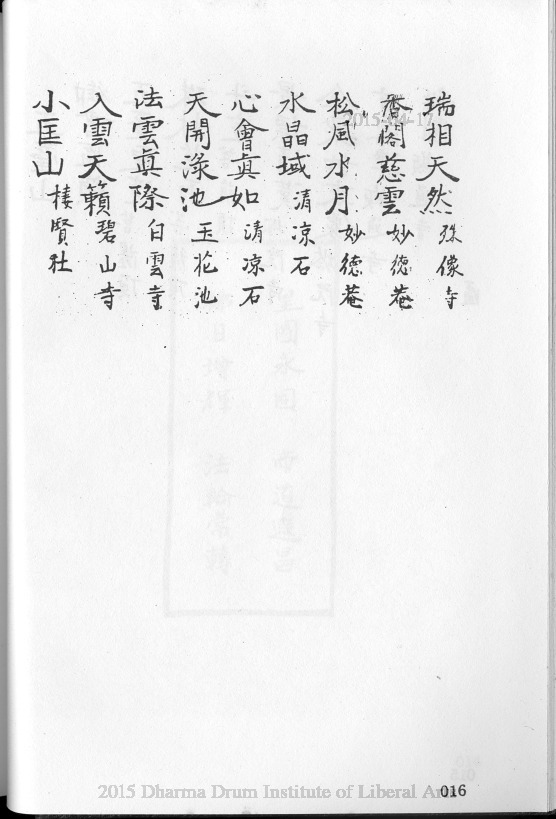 瑞相天然 殊像寺
香閣慈雲 妙德菴
松風水月 妙德菴
水晶域 清凉石
心會真如 清凉石
天開淥池 玉花池
法雲真際 白雲寺
入雲天籟 碧山寺
小匡山 棲賢社
2015 Dharma Drum Institute of Liberal Arts
016